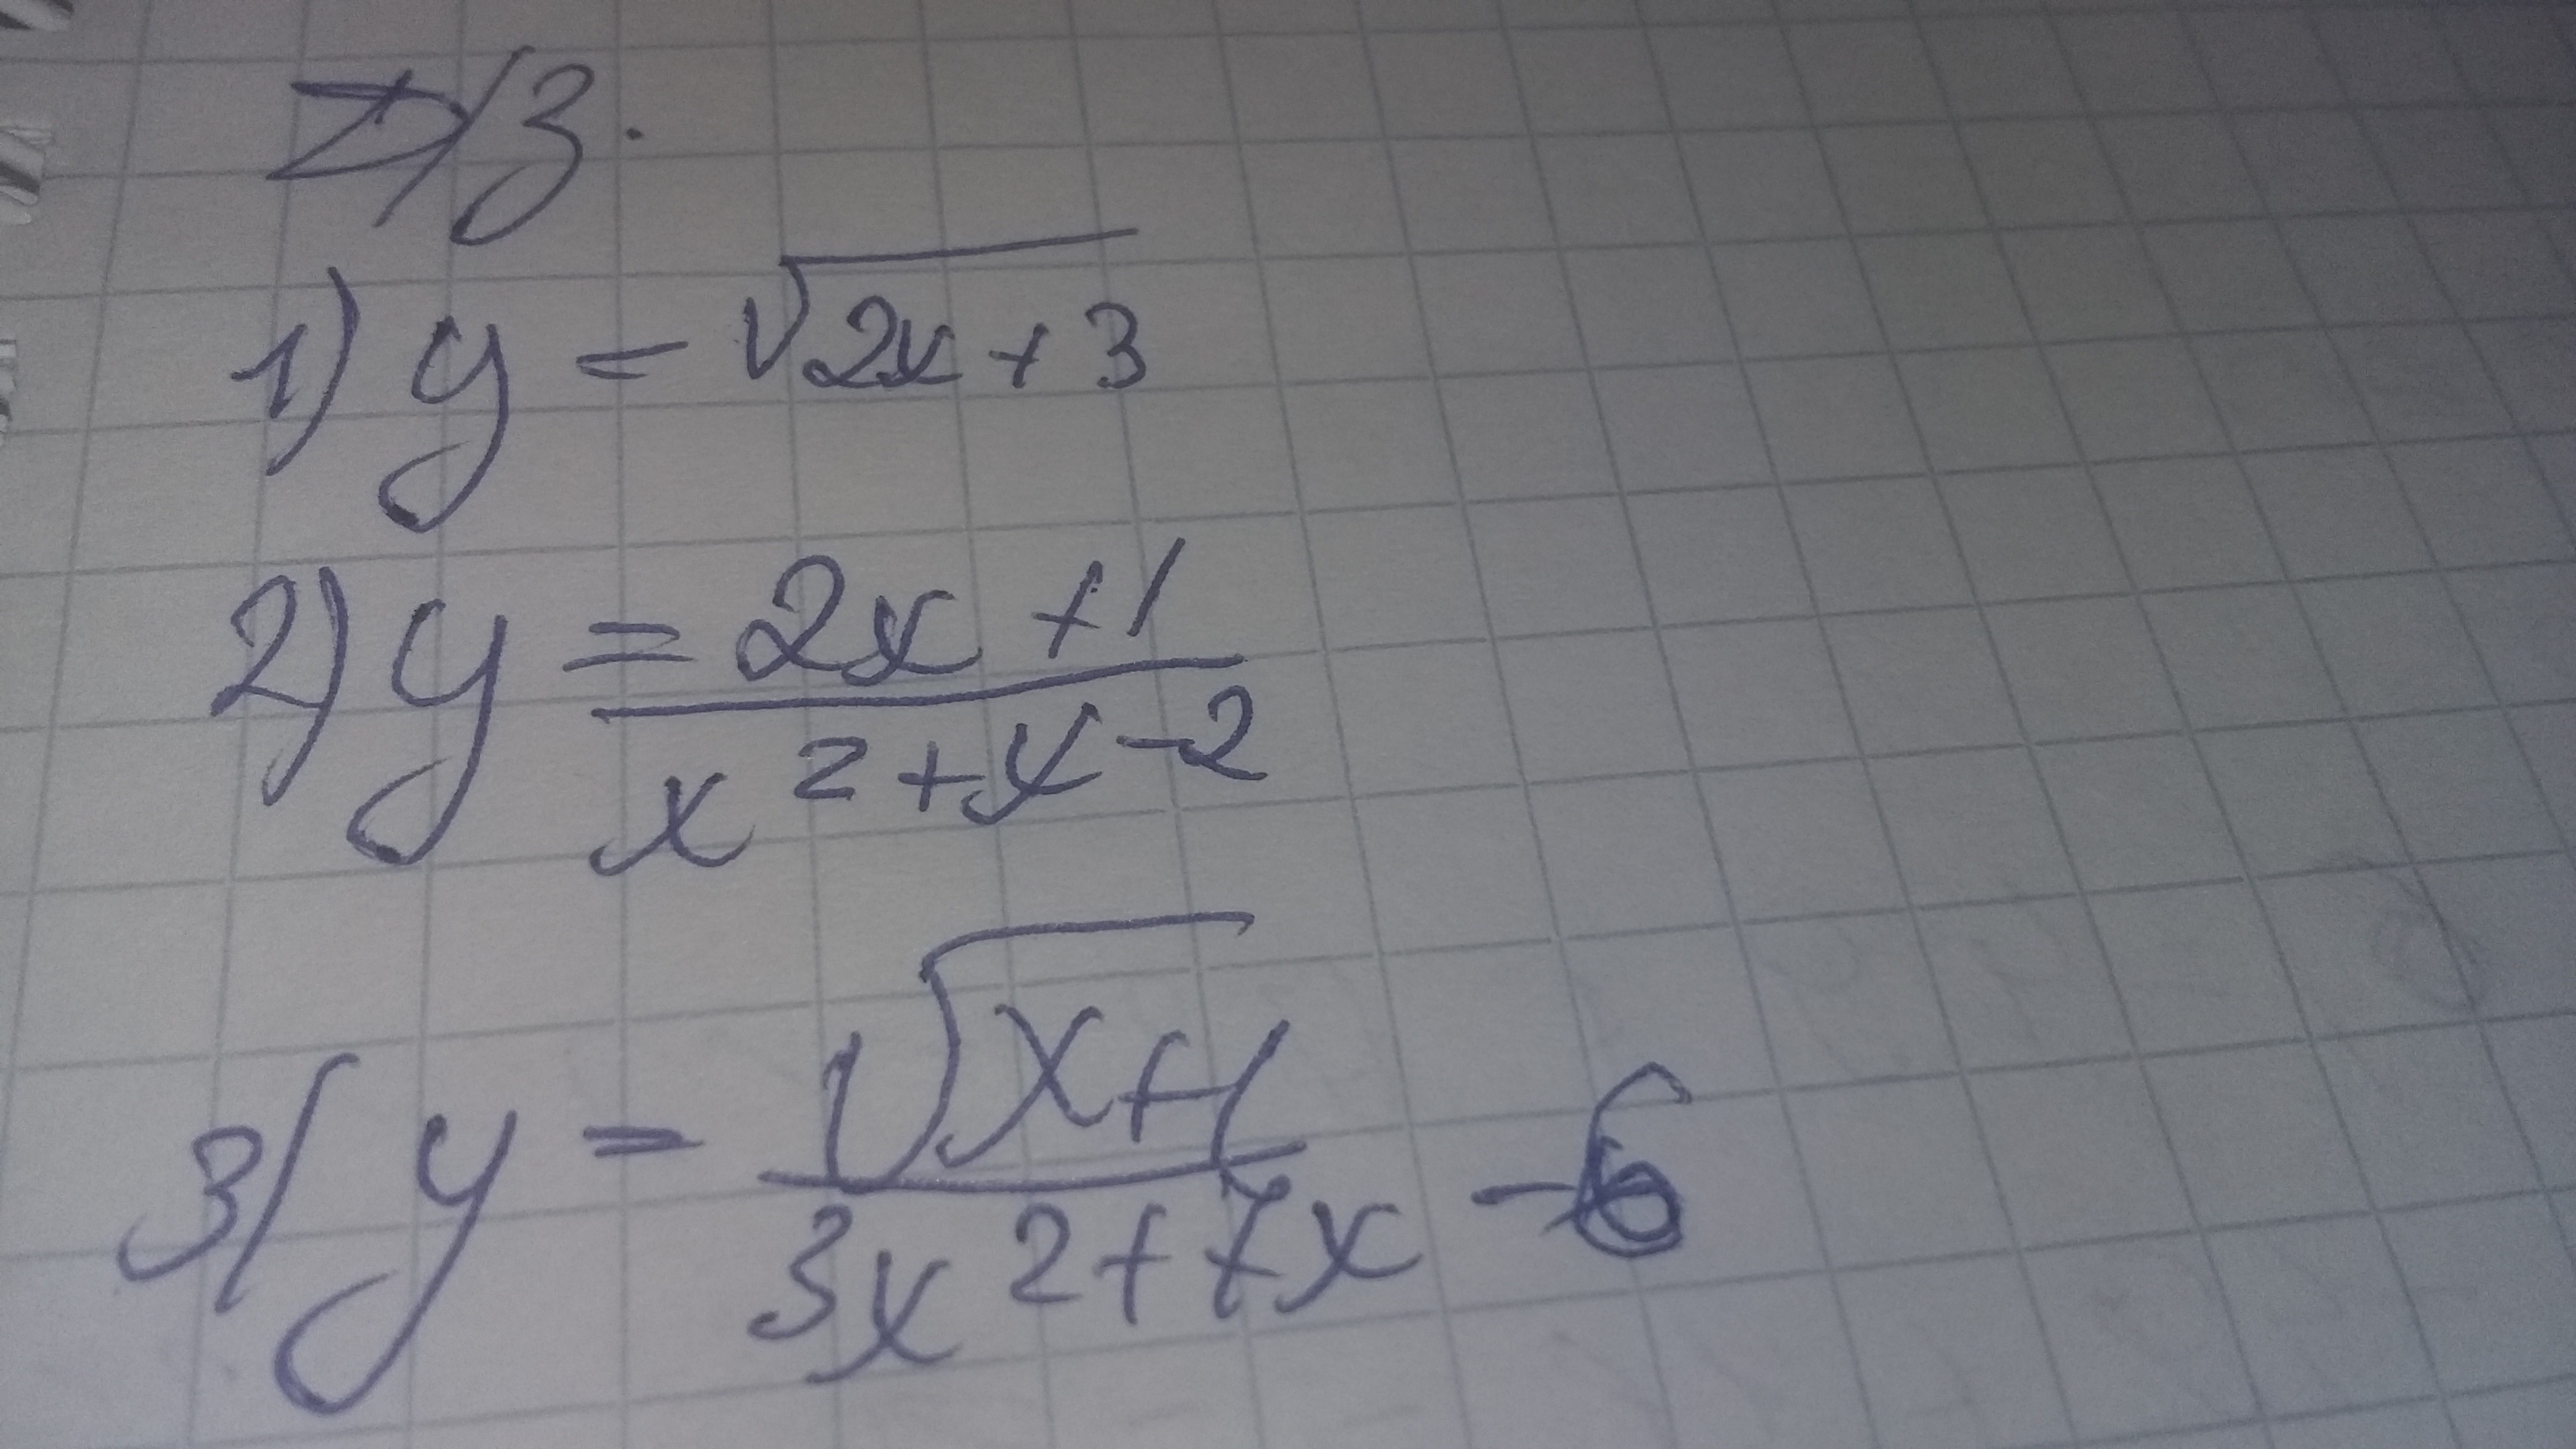 Д/З.
1) y = √2x + 3
2) y = 2x + 1
x² + x - 2
3) y = √x+1
3x² + 7x - 6